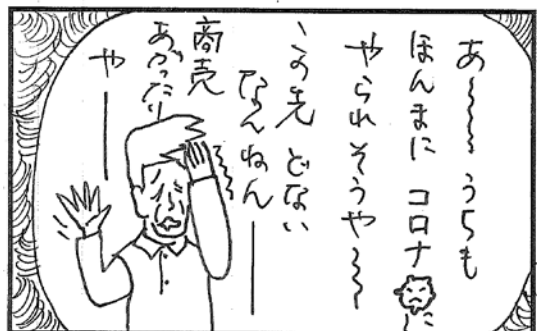 あ〜〜〜うちも
ほんまに コロナに
やられそうや〜〜
この先 どない
なんねん――
商売
あがったり
や――